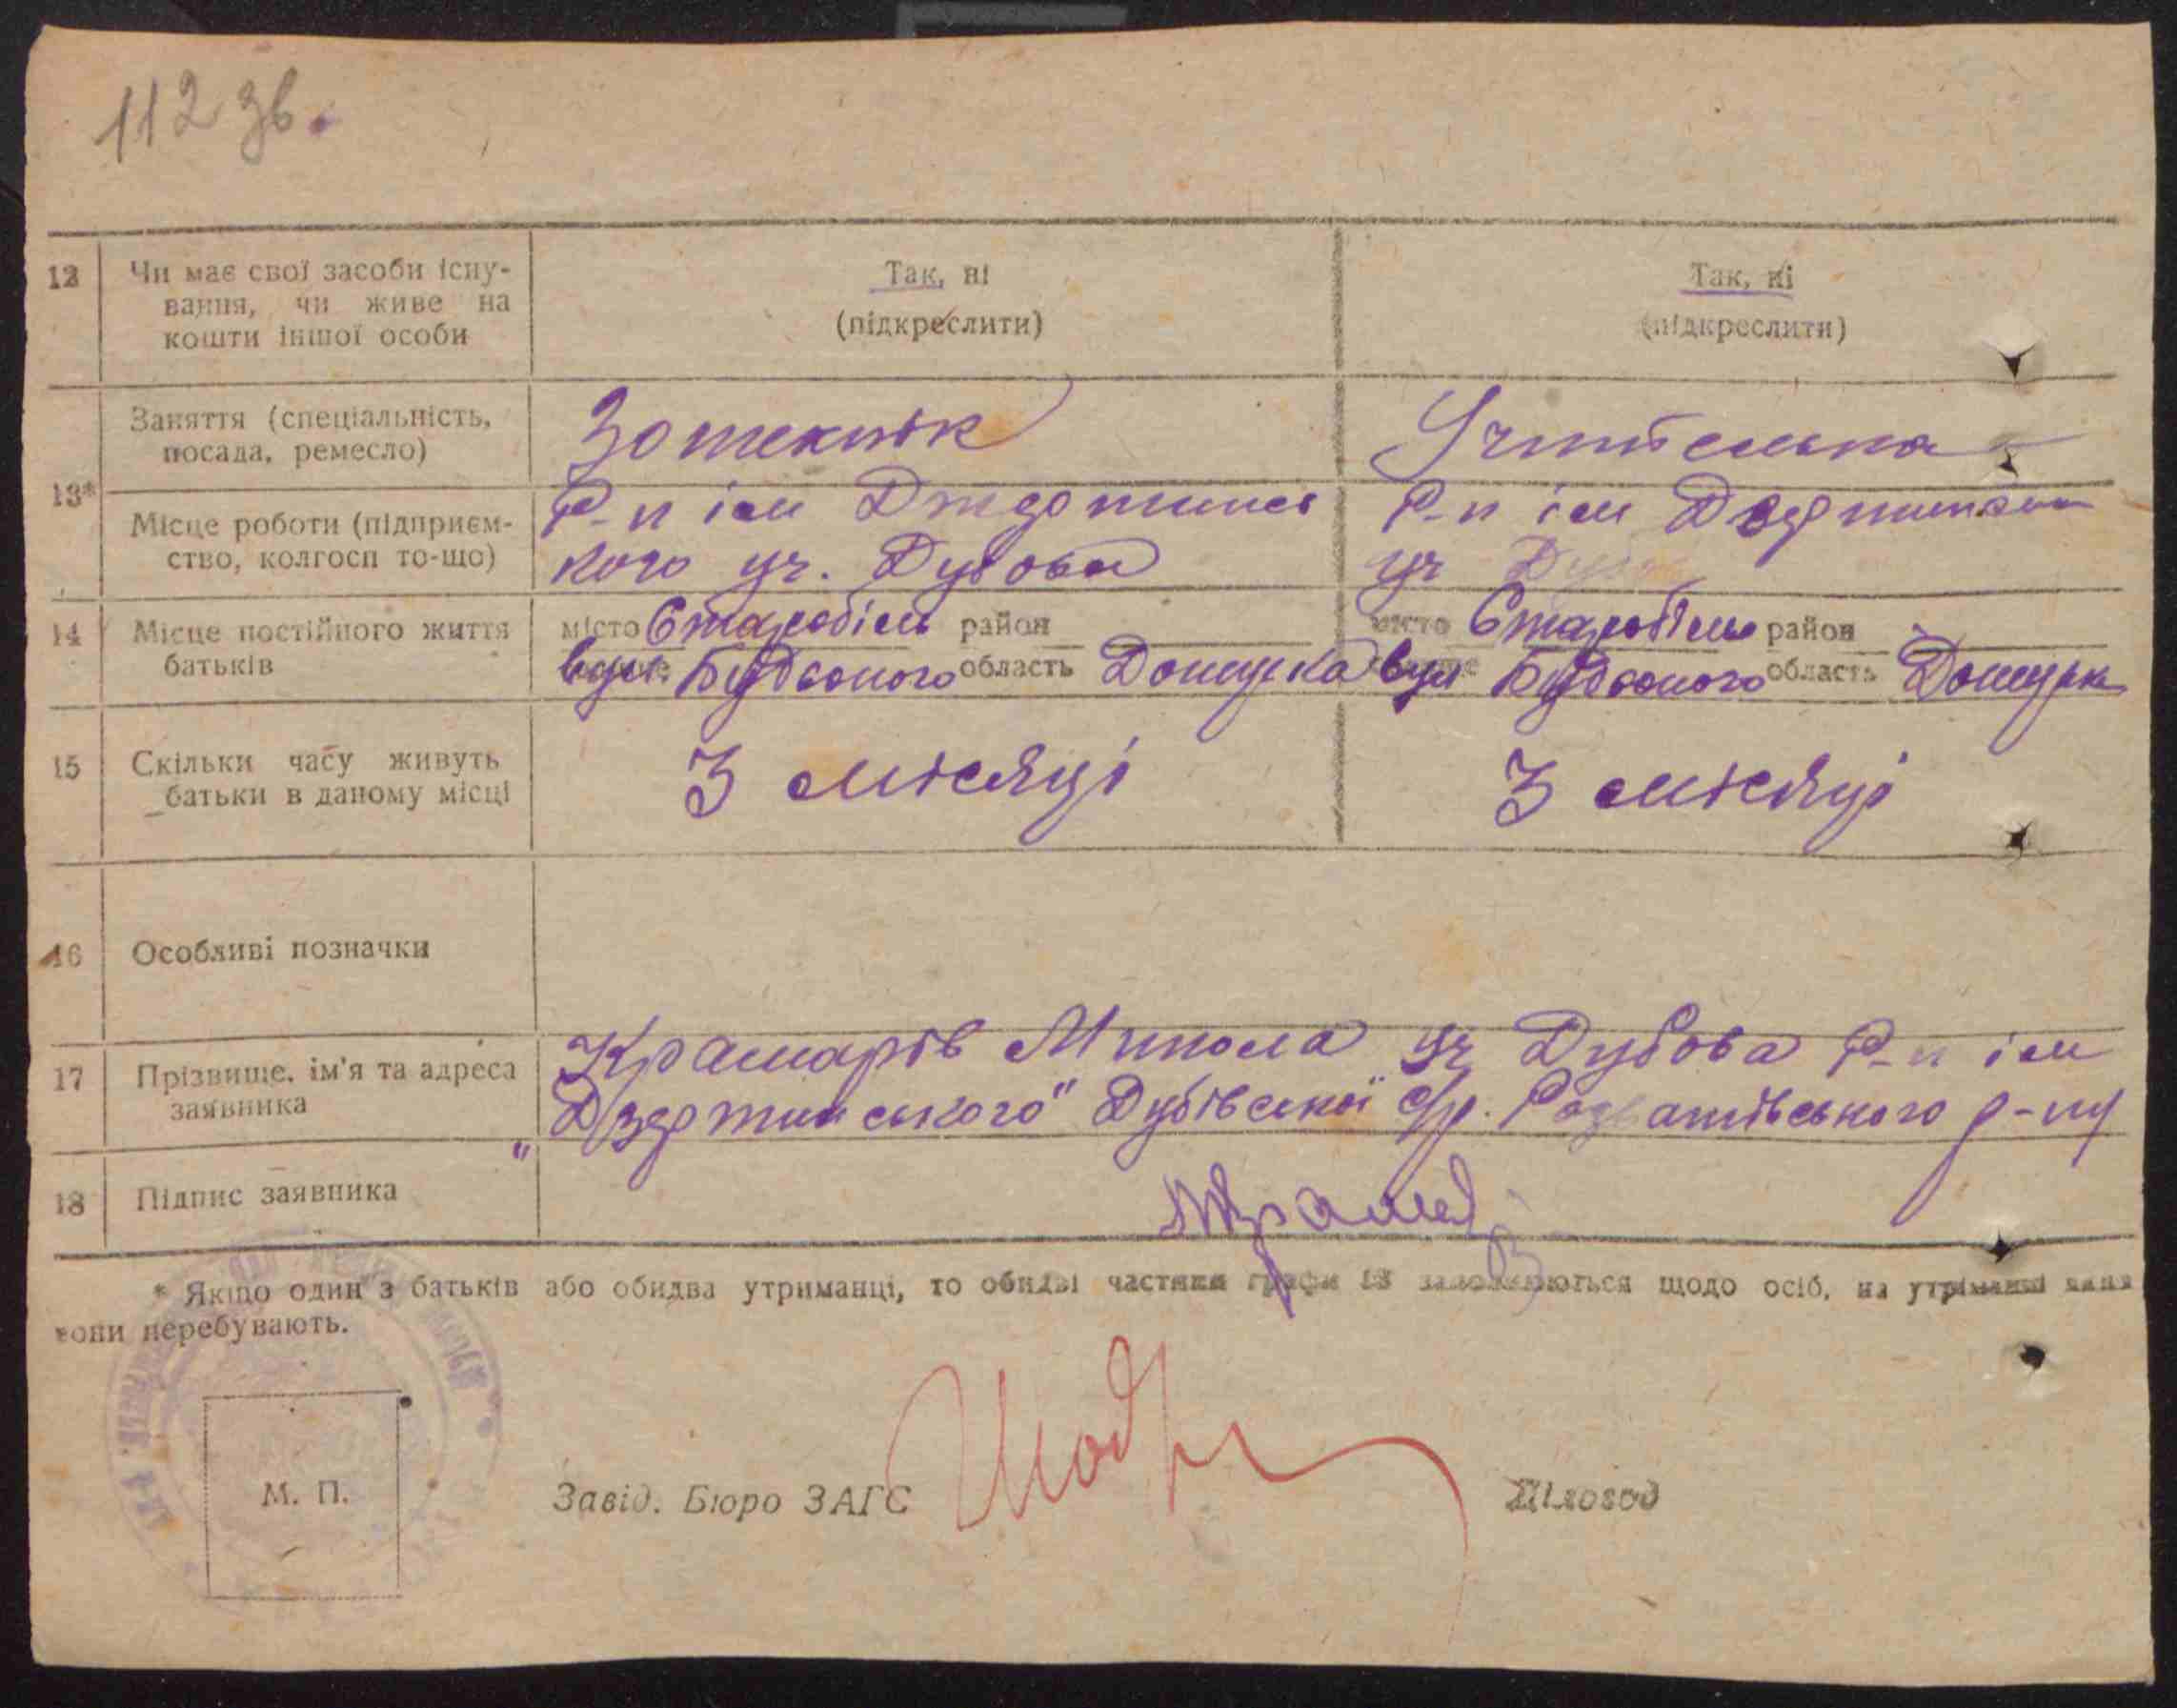 112 зв.
12 Чи має свої засоби існу-
вання, чи живе на
кошти іншої особи
Так, ні
(підкреслити)
Так, ні
(підкреслити)
13*
Заняття (спеціальність,
посада, ремесло)
Зотехнік
Учителька
Місце роботи (підприєм-
ство, колгосп то-що)
Р-п ім
кого уч. Дубова
Р-п ім
уч
14 Місце постійного життя
батьків
місто Старобіль район
вул. Будьоного область Донецька
місто Старобіль район
вул Будьоного область Донецьк
15 Скільки часу живуть
батьки в даному місці
3 місяці
3 місяці
16 Особливі позначки
17 Прізвище, ім'я та адреса
заявника
Крамарів Микола уч Дубова Р-п ім
"Дзержинського" Дубівської с/р. р-ну
18 Підпис заявника
* Якщо один з батьків або обидва утриманці, то обидві частини графи 13 заповнюються щодо осіб, на утриманні яких
вони перебувають.
М. П.
Завід. Бюро ЗАГС
Діловод